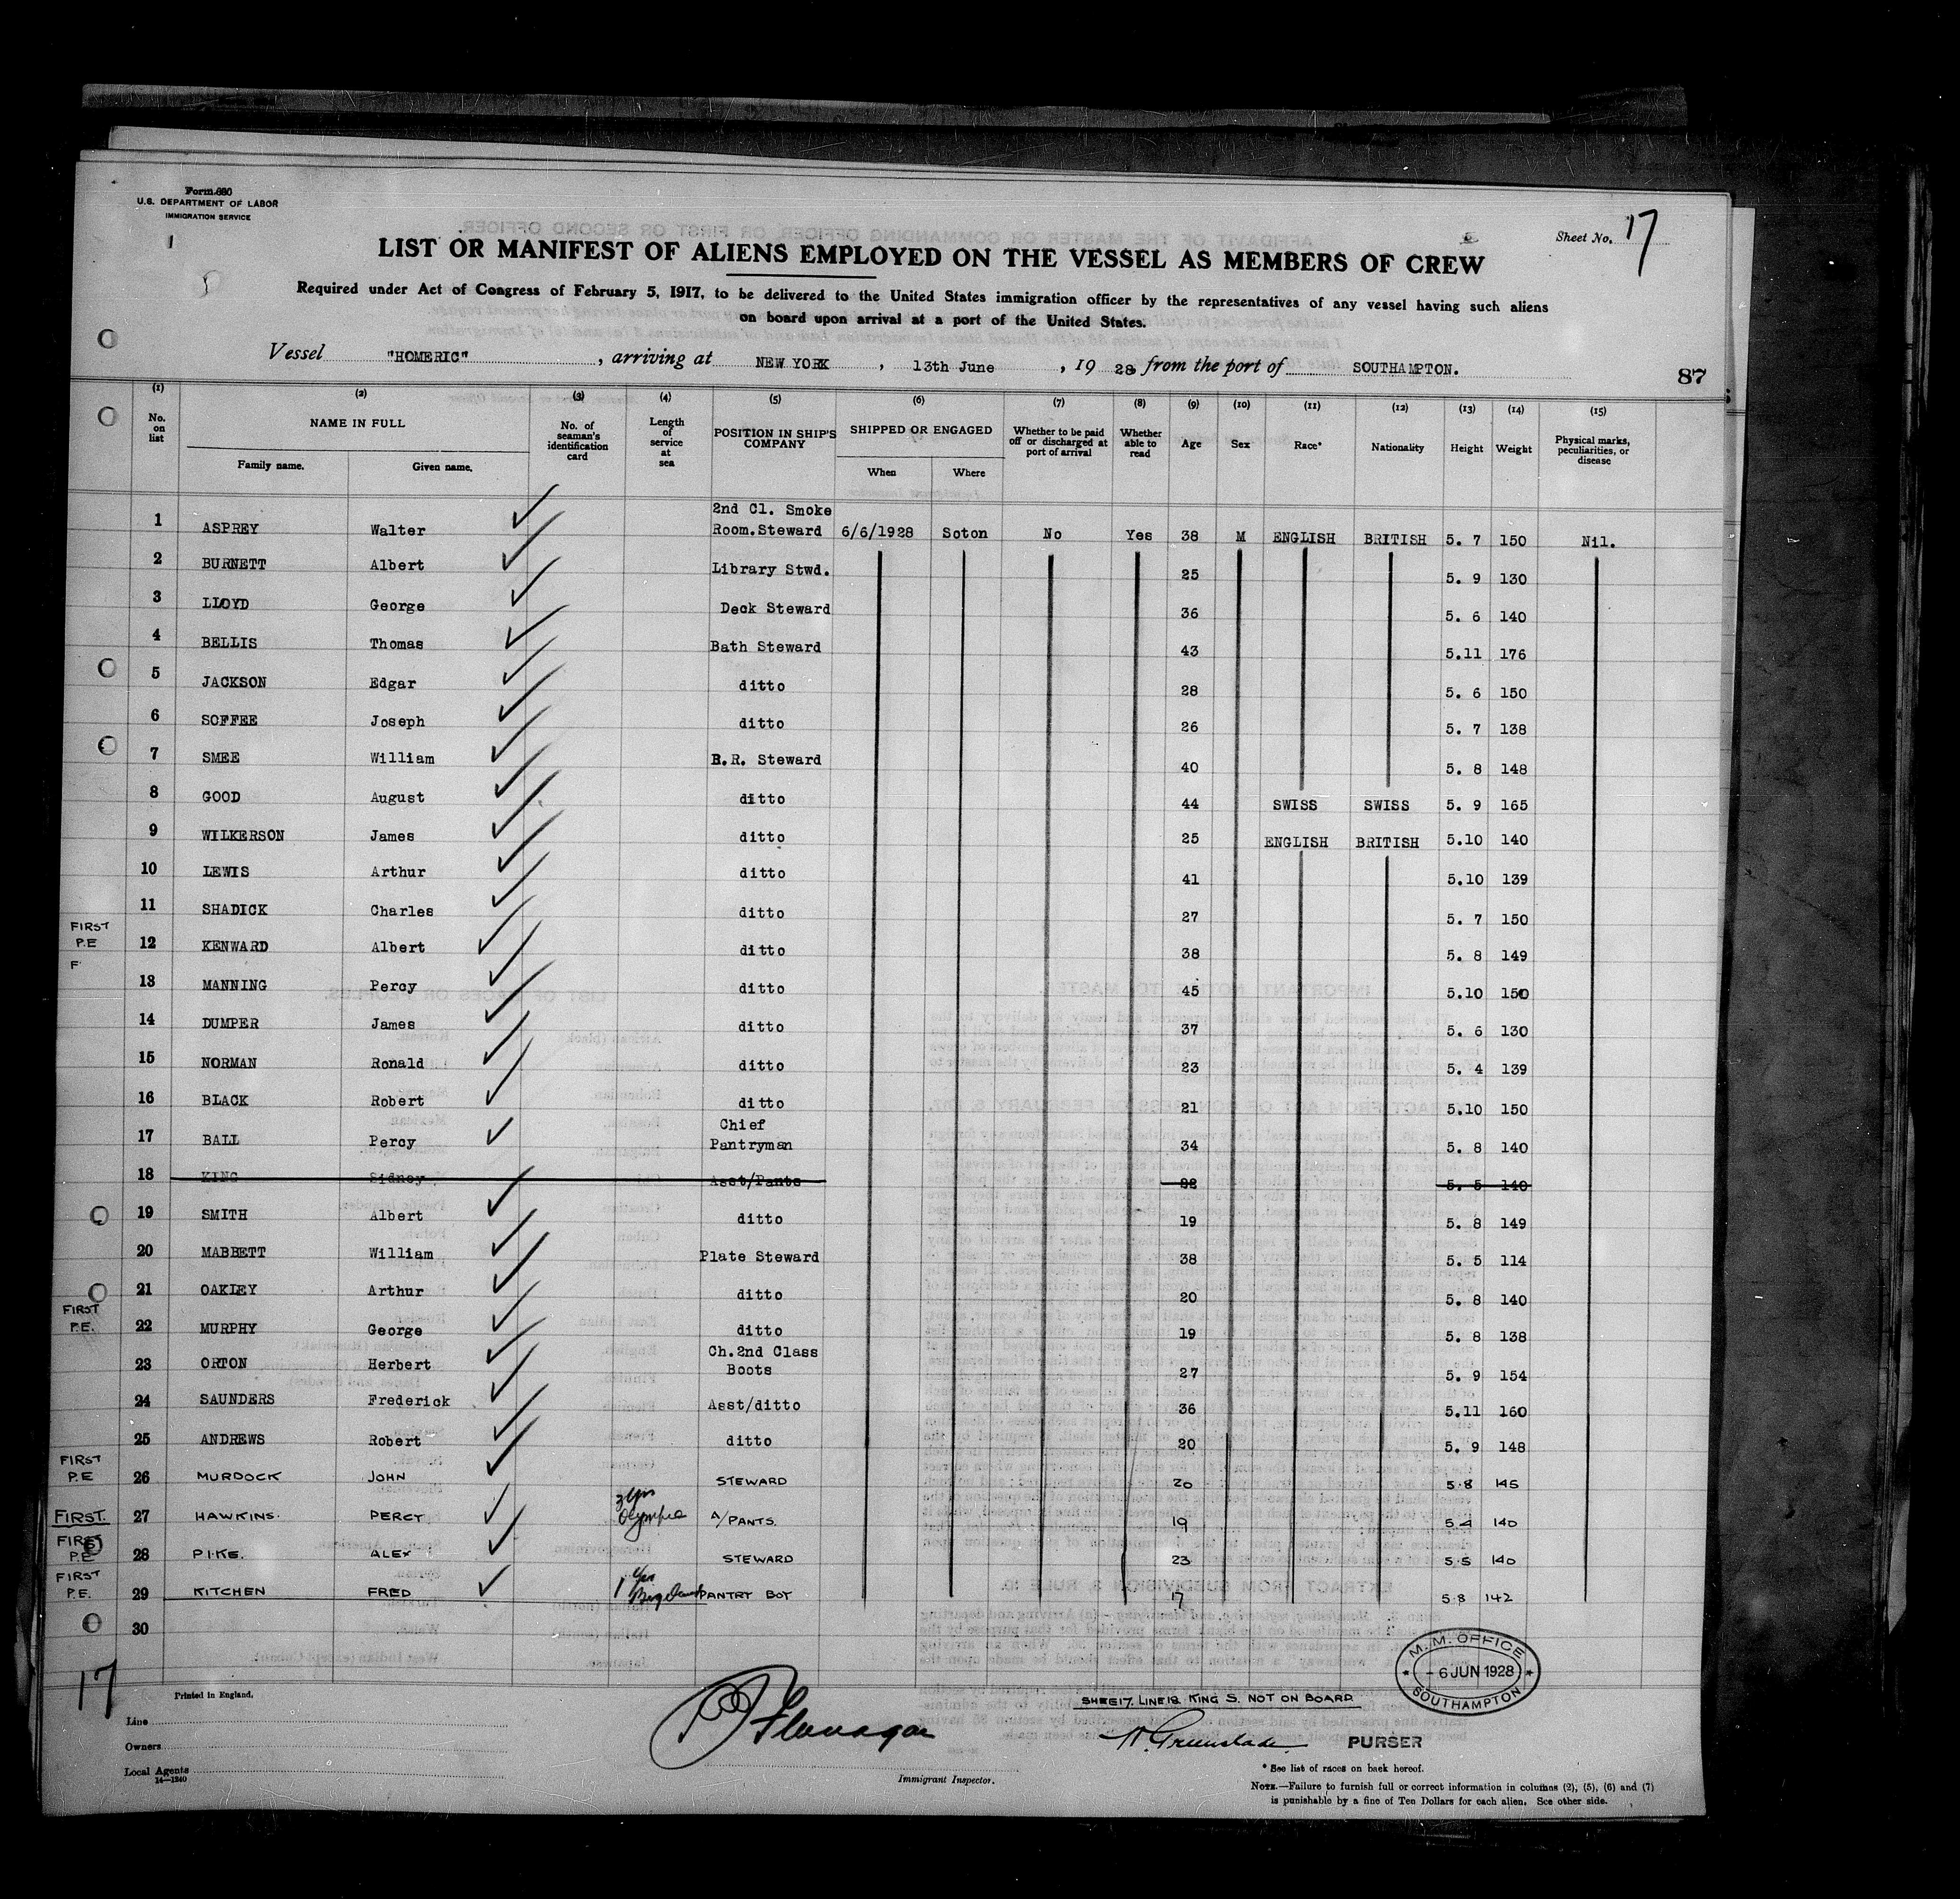 Form 680
U.S. DEPARTMENT OF LABOR
IMMIGRATION SERVICE
Sheet No. 17
LIST OR MANIFEST OF ALIENS EMPLOYED ON THE VESSEL AS MEMBERS OF CREW
Required under Act of Congress of February 5, 1917, to be delivered to the United States immigration officer by the representatives of any vessel having such aliens
on board upon arrival at a port of the United States.
Vessel "HOMERIC", arriving at NEW YORK, 13th June, 1928, from the port of SOUTHAMPTON.
87
(1) (2) (3) (4) (5) (6) (7) (8) (9) (10) (11) (12) (13) (14) (15)
No. on list NAME IN FULL Family name. Given name. No. of seaman's identification card Length of service at sea POSITION IN SHIP'S COMPANY SHIPPED OR ENGAGED When Where Whether to be paid off or discharged at port of arrival Whether able to read Age Sex Race* Nationality Height Weight Physical marks, peculiarities, or disease
1 ASPREY Walter 2nd Cl. Smoke Room.Steward 6/6/1928 Soton No Yes 38 M ENGLISH BRITISH 5. 7 150 Nil.
2 BURNETT Albert Library Stwd. 25 5. 9 130
3 LLOYD George Deck Steward 36 5. 6 140
4 BELLIS Thomas Bath Steward 43 5.11 176
5 JACKSON Edgar ditto 28 5. 6 150
6 SOFFEE Joseph ditto 26 5. 7 138
7 SMEE William B.R. Steward 40 5. 8 148
8 GOOD August ditto 44 SWISS SWISS 5. 9 165
9 WILKERSON James ditto 25 ENGLISH BRITISH 5.10 140
10 LEWIS Arthur ditto 41 5.10 139
11 SHADICK Charles ditto 27 5. 7 150
FIRST P.E 12 KENWARD Albert ditto 38 5. 8 149
F
13 MANNING Percy ditto 45 5.10 150
14 DUMPER James ditto 37 5. 6 130
15 NORMAN Ronald ditto 23 5. 4 139
16 BLACK Robert ditto 21 5.10 150
17 BALL Percy Chief Pantryman 34 5. 8 140
18 KING Sidney Asst/Pants 5. 5 140
19 SMITH Albert ditto 19 5. 8 149
20 MABBETT William Plate Steward 38 5. 5 114
21 OAKLEY Arthur ditto 20 5. 8 140
FIRST P.E. 22 MURPHY George ditto 19 5. 8 138
23 ORTON Herbert Ch.2nd Class Boots 27 5. 9 154
24 SAUNDERS Frederick Asst/ditto 36 5.11 160
25 ANDREWS Robert ditto 20 5. 9 148
FIRST P.E 26 MURDOCK JOHN STEWARD 20 5.8 145
FIRST. 27 HAWKINS. PERCY 3 yrs Olympic A/PANTS. 19 5.4 140
FIRST P.E 28 PIKE. ALEX STEWARD 23 5.5 140
FIRST P.E. 29 KITCHEN FRED 1 yr PANTRY BOY 17 5.8 142
30
17
Printed in England.
Line
Owners
Local Agents
14—1240
Flanagan
Immigrant Inspector.
M.M. OFFICE
- 6 JUN 1928
SOUTHAMPTON
SHEET 17. LINE 18. KING S. NOT ON BOARD
PURSER
* See list of races on back hereof.
NOTE.—Failure to furnish full or correct information in columns (2), (5), (6) and (7)
is punishable by a fine of Ten Dollars for each alien. See other side.